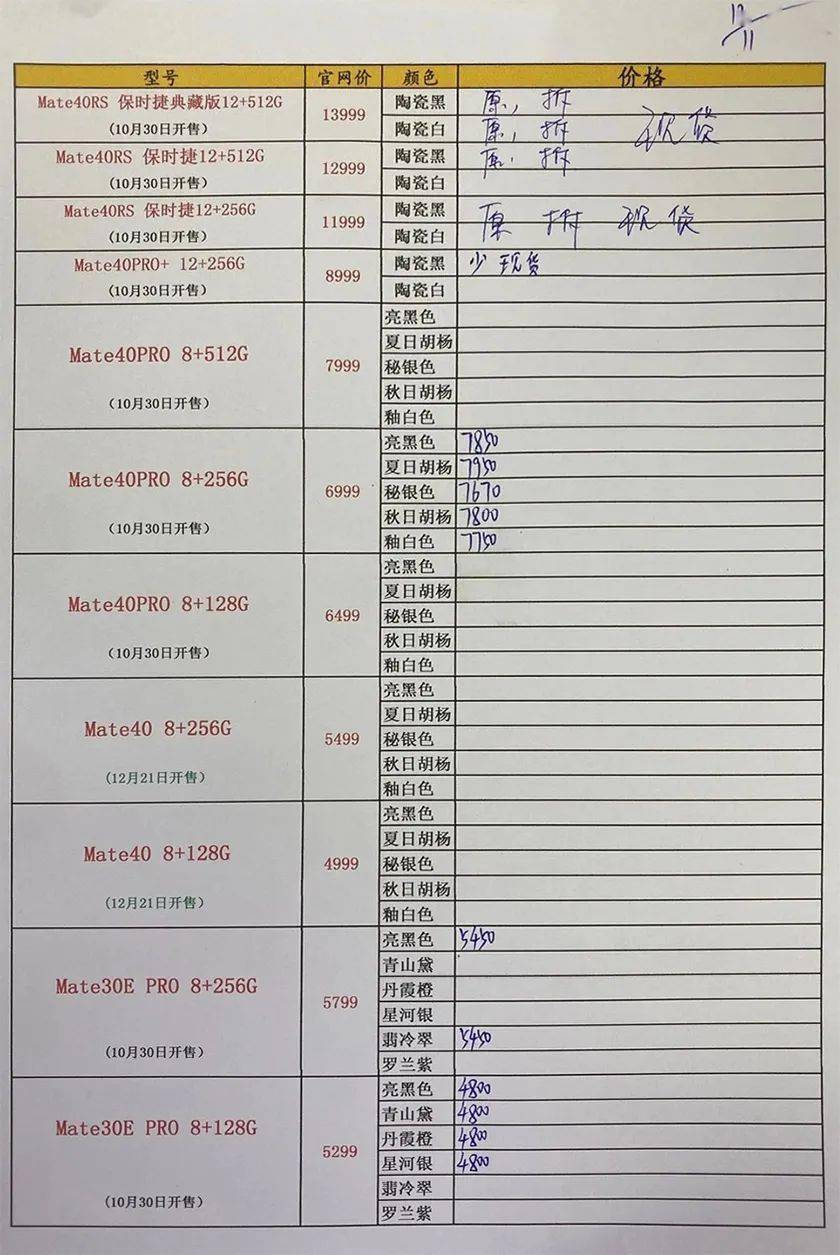 12/11
型号 官网价 颜色 价格
Mate40RS 保时捷典藏版12+512G
(10月30日开售)
13999
陶瓷黑 原, 拆
陶瓷白 原, 拆 现货
Mate40RS 保时捷12+512G
(10月30日开售)
12999
陶瓷黑 原. 拆
陶瓷白
Mate40RS 保时捷12+256G
(10月30日开售)
11999
陶瓷黑
陶瓷白
原 拆 现货
Mate40PRO+ 12+256G
(10月30日开售)
8999
陶瓷黑 少 现货
陶瓷白
Mate40PRO 8+512G
(10月30日开售)
7999
亮黑色
夏日胡杨
秘银色
秋日胡杨
釉白色
Mate40PRO 8+256G
(10月30日开售)
6999
亮黑色 7850
夏日胡杨 7950
秘银色 7670
秋日胡杨 7800
釉白色 7750
Mate40PRO 8+128G
(10月30日开售)
6499
亮黑色
夏日胡杨
秘银色
秋日胡杨
釉白色
Mate40 8+256G
(12月21日开售)
5499
亮黑色
夏日胡杨
秘银色
秋日胡杨
釉白色
Mate40 8+128G
(12月21日开售)
4999
亮黑色
夏日胡杨
秘银色
秋日胡杨
釉白色
Mate30E PRO 8+256G
(10月30日开售)
5799
亮黑色 5450
青山黛
丹霞橙
星河银
翡冷翠 5450
罗兰紫
Mate30E PRO 8+128G
(10月30日开售)
5299
亮黑色 4800
青山黛 4800
丹霞橙 4800
星河银 4800
翡冷翠
罗兰紫